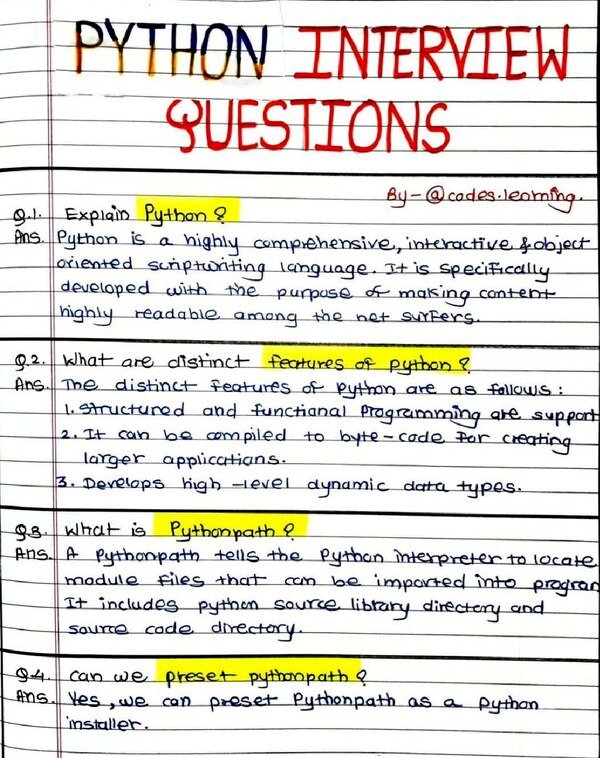 PYTHON INTERVIEW
QUESTIONS
By- @codes.learning.
Q.1. Explain Python?
Ans. Python is a highly comprehensive, interactive & object
oriented scriptwriting language. It is specifically
developed with the purpose of making content
highly readable among the net surfers.
Q.2. What are distinct features of python?
Ans. The distinct features of Python are as follows:
1. Structured and functional Programming are support
2. It can be compiled to byte-code for creating
larger applications.
3. Develops high-level dynamic data types.
Q.3. What is Pythonpath?
Ans. A Pythonpath tells the Python interpreter to locate
module files that can be imported into program
It includes python source library directory and
source code directory.
Q.4. Can we preset pythonpath?
Ans. Yes, we can preset Pythonpath as a Python
installer.